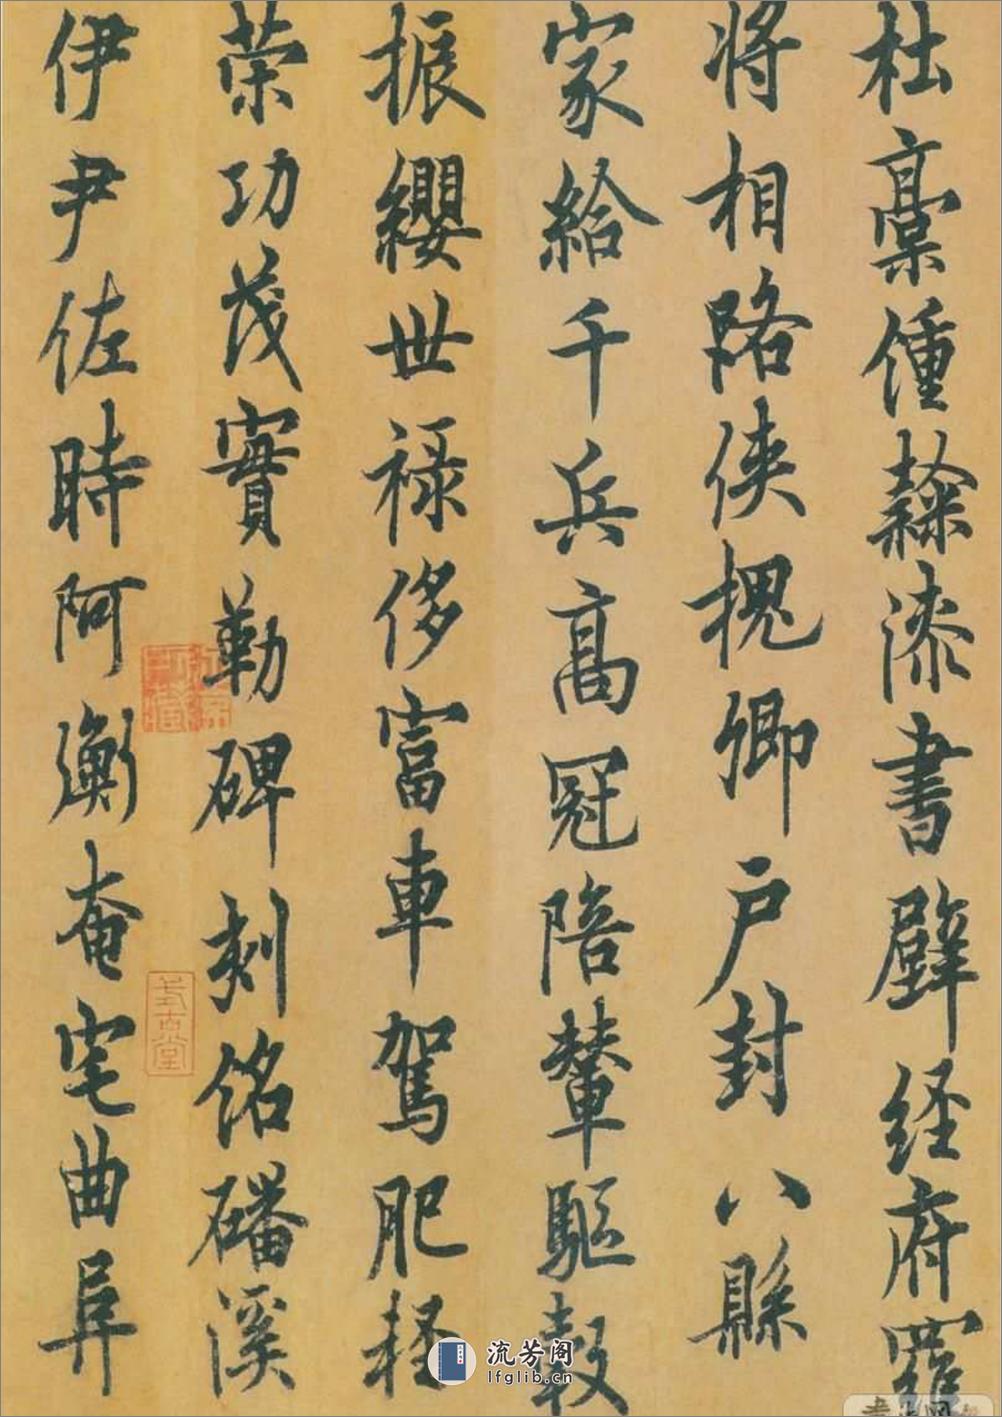 杜稾鍾隸漆書壁經府羅
將相路俠槐卿戶封八縣
家給千兵高冠陪輦驅轂
振纓世祿侈富車駕肥輕
策功茂實勒碑刻銘磻溪
伊尹佐時阿衡奄宅曲阜
式古堂
流芳阁
lfglib.cn